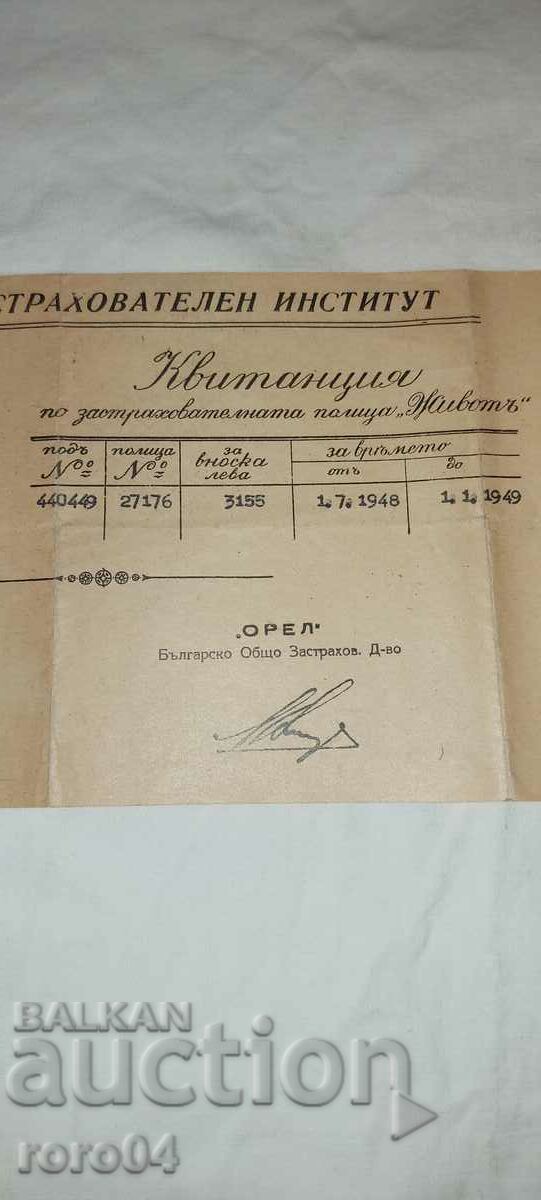 СТРАХОВАТЕЛЕН ИНСТИТУТ
Квитанция
по застрахователната полица „Животъ"
подъ № полица № за вноска лева за врѣмето отъ до
440449 27176 3155 1.7.1948 1.1.1949
„ОРЕЛ"
Българско Общо Застрахов. Д-во
BALKAN
auction
roro04